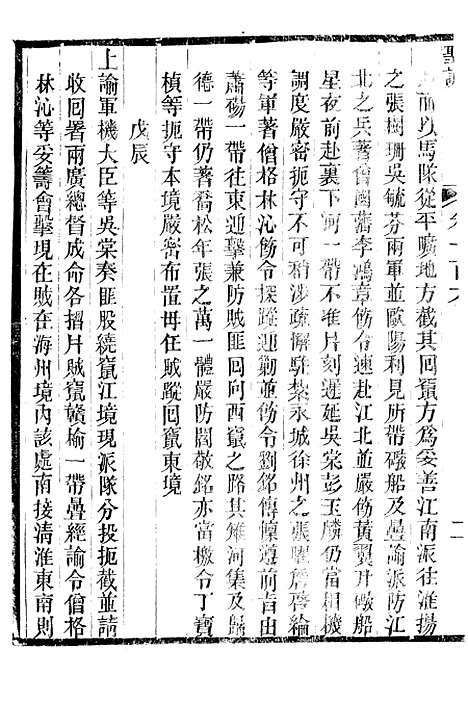 聖訓
卷一百六
二
前以馬隊從平曠地方截其回竄方為妥善江南派往淮揚
之張樹珊吳毓芬兩軍並歐陽利見所帶礮船及疊諭派防江
北之兵著曾國藩李鴻章飭令速赴江北並嚴飭黃翼升礮船
星夜前赴裏下河一帶不准片刻遲延吳棠彭玉麟仍當相機
調度嚴密扼守不可稍涉疏懈駐紮永城徐州之張曜詹啓綸
等軍著僧格林沁飭令探蹤迎擊並飭令劉銘傳懍遵前旨由
蕭碭一帶往東迎擊兼防賊匪回向西竄之路其雉河集及歸
德一帶仍著喬松年張之萬一體嚴防閻敬銘亦當檄令丁寶
楨等扼守本境嚴密布置毋任賊蹤回竄東境
戊辰
上諭軍機大臣等吳棠奏匪股繞竄江境現派隊分投扼截並請
收回署兩廣總督成命各摺片賊竄贛榆一帶疊經諭令僧格
林沁等妥籌會擊現在賊在海州境內該處南接清淮東南則